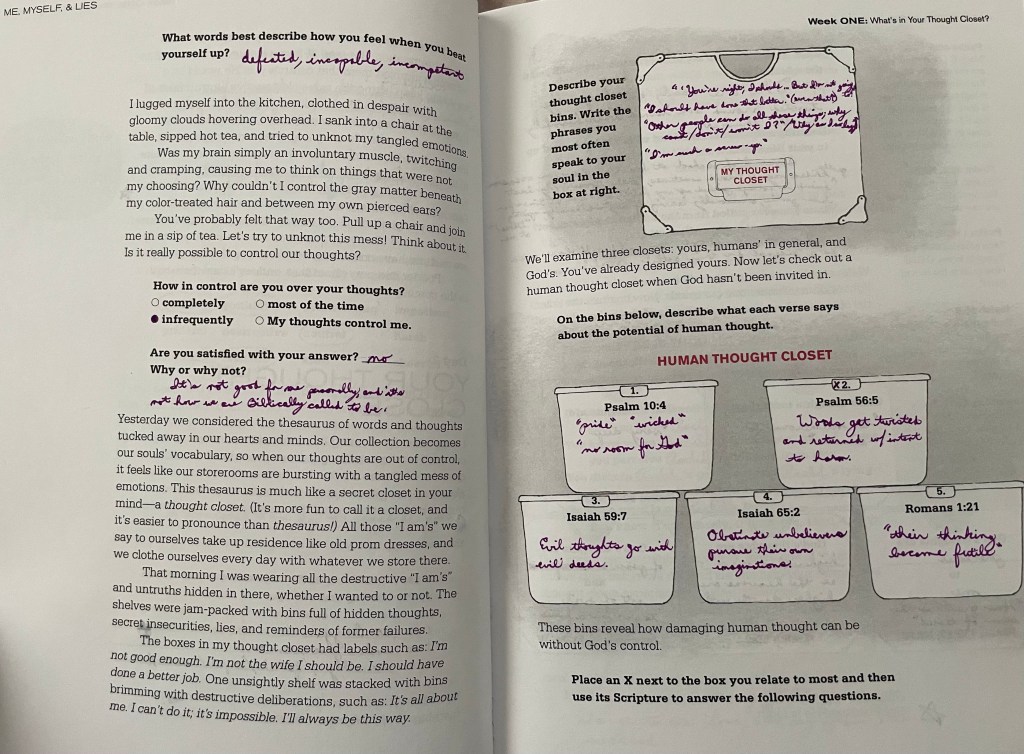 ME, MYSELF, & LIES
What words best describe how you feel when you beat
yourself up? defeated, incapable, incompetent
I lugged myself into the kitchen, clothed in despair with
gloomy clouds hovering overhead. I sank into a chair at the
table, sipped hot tea, and tried to unknot my tangled emotions.
Was my brain simply an involuntary muscle, twitching
and cramping, causing me to think on things that were not
my choosing? Why couldn't I control the gray matter beneath
my color-treated hair and between my own pierced ears?
You've probably felt that way too. Pull up a chair and join
me in a sip of tea. Let's try to unknot this mess! Think about it.
Is it really possible to control our thoughts?
How in control are you over your thoughts?
completely most of the time
infrequently My thoughts control me.
Are you satisfied with your answer? no
Why or why not?
It's not good for me personally, and it's
not how we are Biblically called to be.
Yesterday we considered the thesaurus of words and thoughts
tucked away in our hearts and minds. Our collection becomes
our souls' vocabulary, so when our thoughts are out of control,
it feels like our storerooms are bursting with a tangled mess of
emotions. This thesaurus is much like a secret closet in your
mind—a thought closet. (It's more fun to call it a closet, and
it's easier to pronounce than thesaurus!) All those "I am's" we
say to ourselves take up residence like old prom dresses, and
we clothe ourselves every day with whatever we store there.
That morning I was wearing all the destructive "I am's"
and untruths hidden in there, whether I wanted to or not. The
shelves were jam-packed with bins full of hidden thoughts,
secret insecurities, lies, and reminders of former failures.
The boxes in my thought closet had labels such as: I'm
not good enough. I'm not the wife I should be. I should have
done a better job. One unsightly shelf was stacked with bins
brimming with destructive deliberations, such as: It's all about
me. I can't do it; it's impossible. I'll always be this way.
Week ONE: What's in Your Thought Closet?
Describe your
thought closet
bins. Write the
phrases you
most often
speak to your
soul in the
box at right.
"You're right, I should... But I'm not going
"I should have done that better."
"Other people can do all these things, why
can't/don't/won't I?"
"I'm such a screw-up."
MY THOUGHT
CLOSET
We'll examine three closets: yours, humans' in general, and
God's. You've already designed yours. Now let's check out a
human thought closet when God hasn't been invited in.
On the bins below, describe what each verse says
about the potential of human thought.
HUMAN THOUGHT CLOSET
1.
Psalm 10:4
"pride" "wicked"
"no room for God"
X 2.
Psalm 56:5
Words get twisted
and returned w/ intent
to harm.
3.
Isaiah 59:7
Evil thoughts go with
evil deeds.
4.
Isaiah 65:2
Obstinate unbelievers
pursue their own
imaginations.
5.
Romans 1:21
"their thinking
became futile"
These bins reveal how damaging human thought can be
without God's control.
Place an X next to the box you relate to most and then
use its Scripture to answer the following questions.